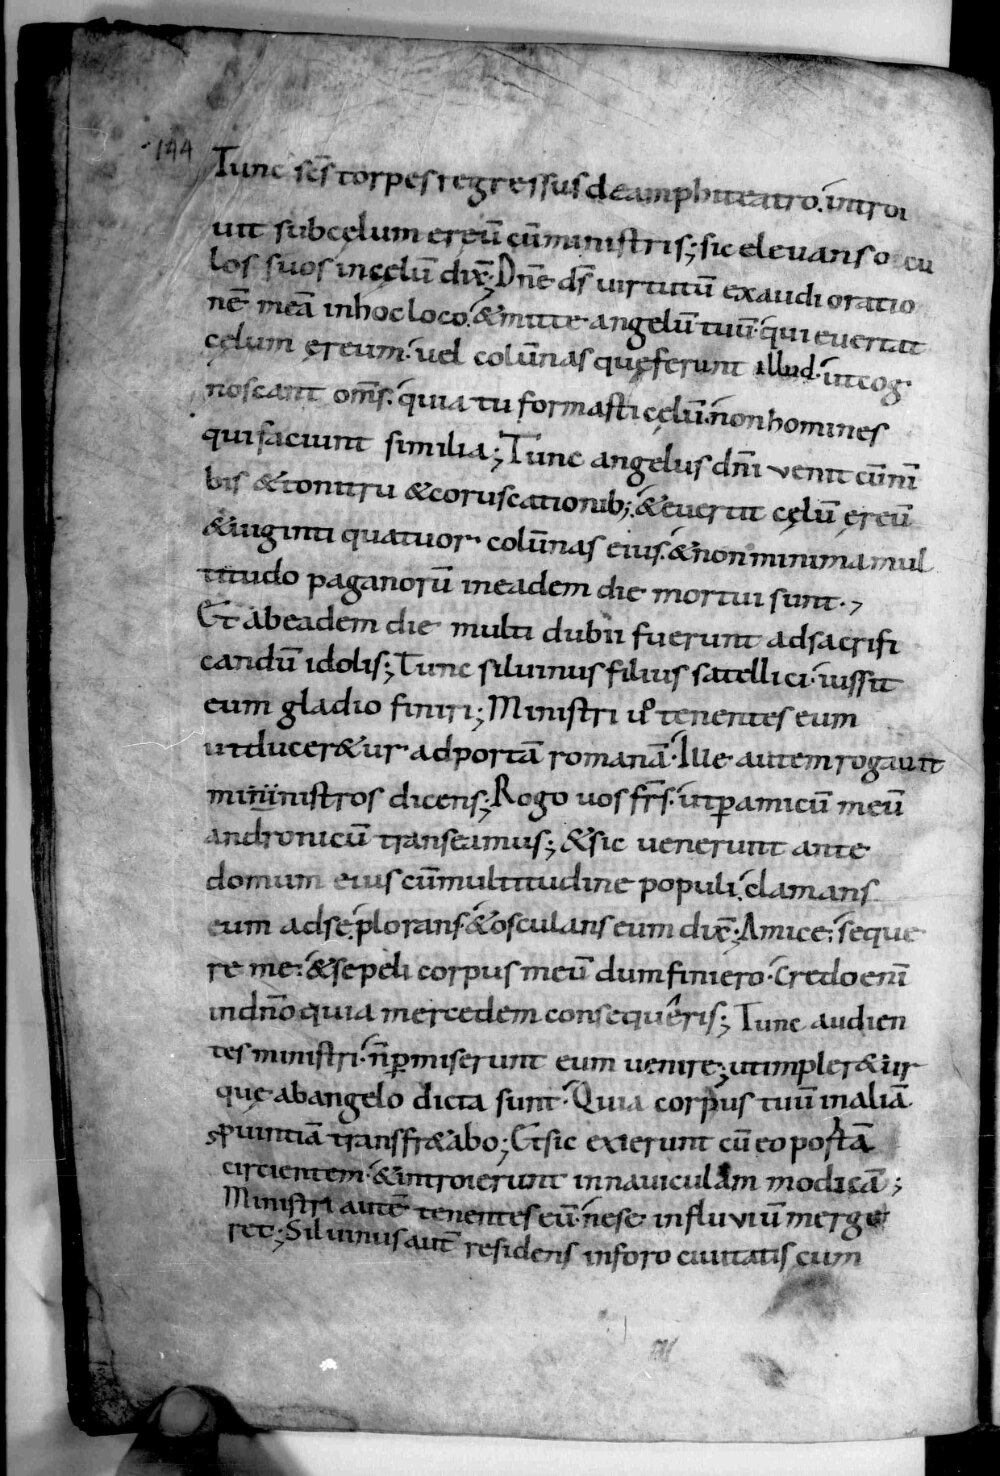 144
Tunc scs̄ torpes regressus de amphiteatro. introi
uit sub cęlum ereū cū ministris; sic elevans ocu
los suos in cęlū dix̄; Dn̄e ds̄ uirtutū exaudi oratio
nē meā in hoc loco. & mitte angelū tuū. qui euertat
cęlum ęreum. uel colūnas quę ferunt illud. ut cog
noscant om̄s. quia tu formasti cęlū. non homines
qui faciunt similia; Tunc angelus dn̄i venit cū nī
bis & tonitru & coruscationib; & euertit cęlū ęreū
& uiginti quatuor colūnas eius. & non minima mul
titudo paganorū in eadem die mortui sunt.,
Et ab eadem die multi dubii fuerunt ad sacrifi
candū idolis; Tunc siluinus filius satellici. iussit
eum gladio finiri; Ministri ūo tenentes eum
ut ducer&ur ad portā romanā. Ille autem rogauit
mininistros dicens; Rogo uos fr̄s. ut p̱ amicū meū
andronicū transeamus; & sic uenerunt ante
domum eius cū multitudine populi. clamans
eum ad se. plorans. & osculans eum dix̄; Amice. seque
re me. & sepeli corpus meū dum finiero. Credo enī
in dn̄o quia mercedem consequeris; Tunc audien
tes ministri. n̄ p̱miserunt eum uenire; ut impler&ur
quę ab angelo dicta sunt. Quia corpus tuū in aliā
p̱uintiā transfr&abo; Et sic exierunt cū eo portā
circientem. & introierunt in nauiculam modicā;
Ministri autē tenentes eū. ne se in fluviū merge
ret; Siluinus aut̄ residens in foro ciuitatis cum